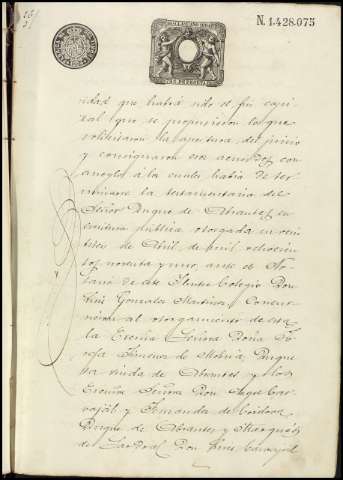 N. 1.428.075
ridad que habrá sido el fin capi
tal que se propusieron los que
solicitaron la apertura del juicio
y consignaron ese acuerdo con
arreglo á la cual habia de ter
minarse la testamentaria del
Señor Duque de Abrantes en
escritura pública otorgada en vein
titres de Abril de mil ochocien
tos noventa y uno ante el No
tario de este Ilustre Colegio Don
Luis Gonzalez Martinez. Concur
rieron al otorgamiento de esta
la Excma Señora Doña Jo
sefa Jimenez de Molina Duque
sa viuda de Abrantes y los
Excmos Señores Don Angel Car
vajal y Fernandez de Cordova
Duque de Abrantes y Marqués
de Sardoal, Don Luis Carvajal